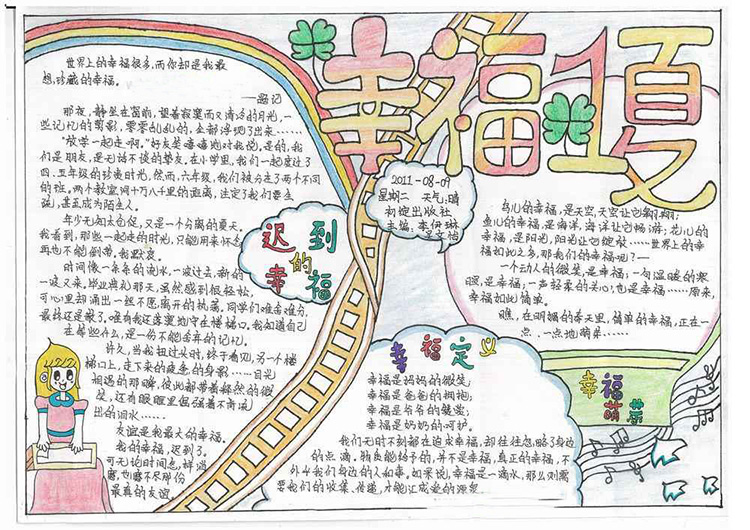 幸福1夏
世界上的幸福很多,而你却是我最
想珍藏的幸福。
——题记
那夜,静坐在窗前,望着寂寞而又清冷的月光,一
些记忆的剪影,零零乱乱的,全都浮现了出来……
"放学一起走啊。"好友笑嘻嘻地对我说,是的,我
们是朋友,是无话不谈的挚友,在小学里,我们一起度过了
四、五年级的珍贵时光,然而,六年级,我们被分在了两个不同
的班,两个教室间十万八千里的距离,注定了我们要生
疏,甚至成为陌生人。
年少无知太仓促,又是一个分离的夏天。
我看到,那些一起走的时光,只能用来怀念,
再也不能倒带,我默哀。
时间像一条条的流水,一波过去,新的
一波又来,毕业典礼那天,虽然感到很轻松,
可心里却涌出一丝不愿离开的执着。同学们难舍难分,
最终还是散了。唯有我还落寞地守在楼梯口。我知道自己
在等些什么,是一份不能舍弃的记忆。
许久,当我扭过头时,终于看见,另一个楼
梯口上,走下来的疲惫的身影……目光
相遇的那瞬,彼此都带着释然的微
笑,还有眼眶里倔强着不肯流
出的泪水……
友谊是我最大的幸福。
我的幸福,迟到了。
可无论时间怎样消
磨,也磨不尽那份
最真的友谊。
迟到
的
幸福
2011-08-09
星期二 天气:晴
初绽出版社
主编:李伊琳
鸟儿的幸福,是天空,天空让它翱翔;
鱼儿的幸福,是海洋,海洋让它畅游;花儿的
幸福,是阳光,阳光让它绽放……世界上的幸
福如此之多,那我们的幸福呢?——
一个动人的微笑,是幸福;一句温暖的寒
暄,是幸福;一声轻柔的关心,也是幸福……原来,
幸福如此简单。
瞧,在明媚的春天里,简单的幸福,正在一
点、一点地萌芽……
幸福
萌芽
幸福定义
幸福是妈妈的微笑;
幸福是爸爸的拥抱;
幸福是爷爷的
幸福是奶奶的呵护。
我们无时不刻都在追求幸福,却往往忽略了身边
的点滴。物质能给予的,并不是幸福,真正的幸福,不
外乎我们身边的人和事。如果说,幸福是一滴水,那么则需
要我们的收集、传递,才能汇成爱的源泉